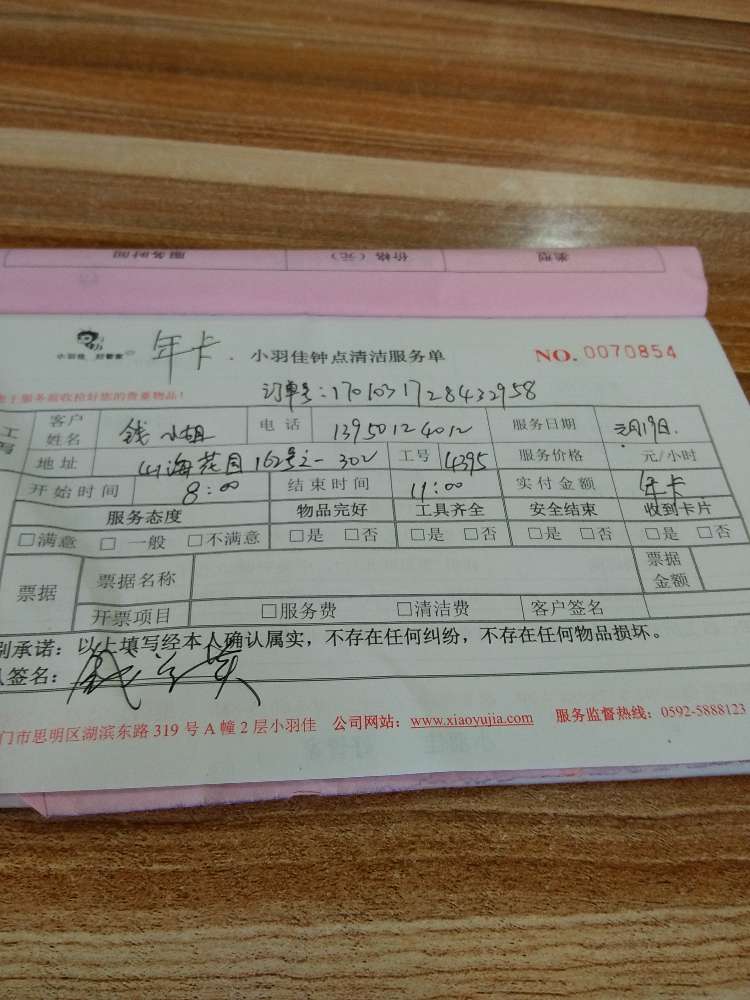 服务时间 价格（元） 类型
小羽佳 好管家 年卡. 小羽佳钟点清洁服务单 NO.0070854
订单号:1701031728432958
服务前收拾好您的贵重物品!
客户姓名 钱小姐 电话 13950124012 服务日期 2月19日.
地址 山海花园162号之-302 工号 4395 服务价格 元/小时
开始时间 8:00 结束时间 11:00 实付金额 年卡
服务态度 物品完好 工具齐全 安全结束 收到卡片
□满意 □一般 □不满意 □是 □否 □是 □否 □是 □否 □是 □否
票据 票据名称 票据金额
开票项目 □服务费 □清洁费 客户签名
别承诺：以上填写经本人确认属实，不存在任何纠纷，不存在任何物品损坏。
签名：
门市思明区湖滨东路 319 号 A 幢 2 层小羽佳 公司网站：www.xiaoyujia.com 服务监督热线：0592-5888123